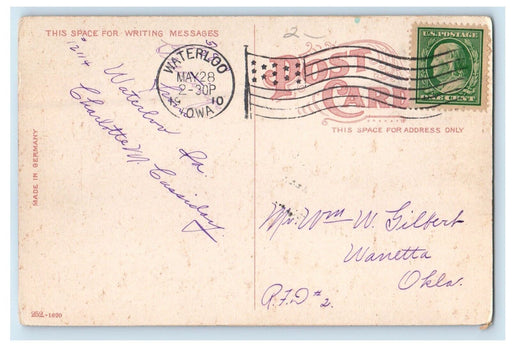 THIS SPACE FOR WRITING MESSAGES
Waterloo Ia
Charlotte M Cassiday
MADE IN GERMANY
WATERLOO
MAY 28
2-30P
10
IOWA
2-
POST
CARD
U.S. POSTAGE
ONE CENT
THIS SPACE FOR ADDRESS ONLY
Mr. Wm W. Gilbert
Wanetta
Okla.
R.F.D #2.